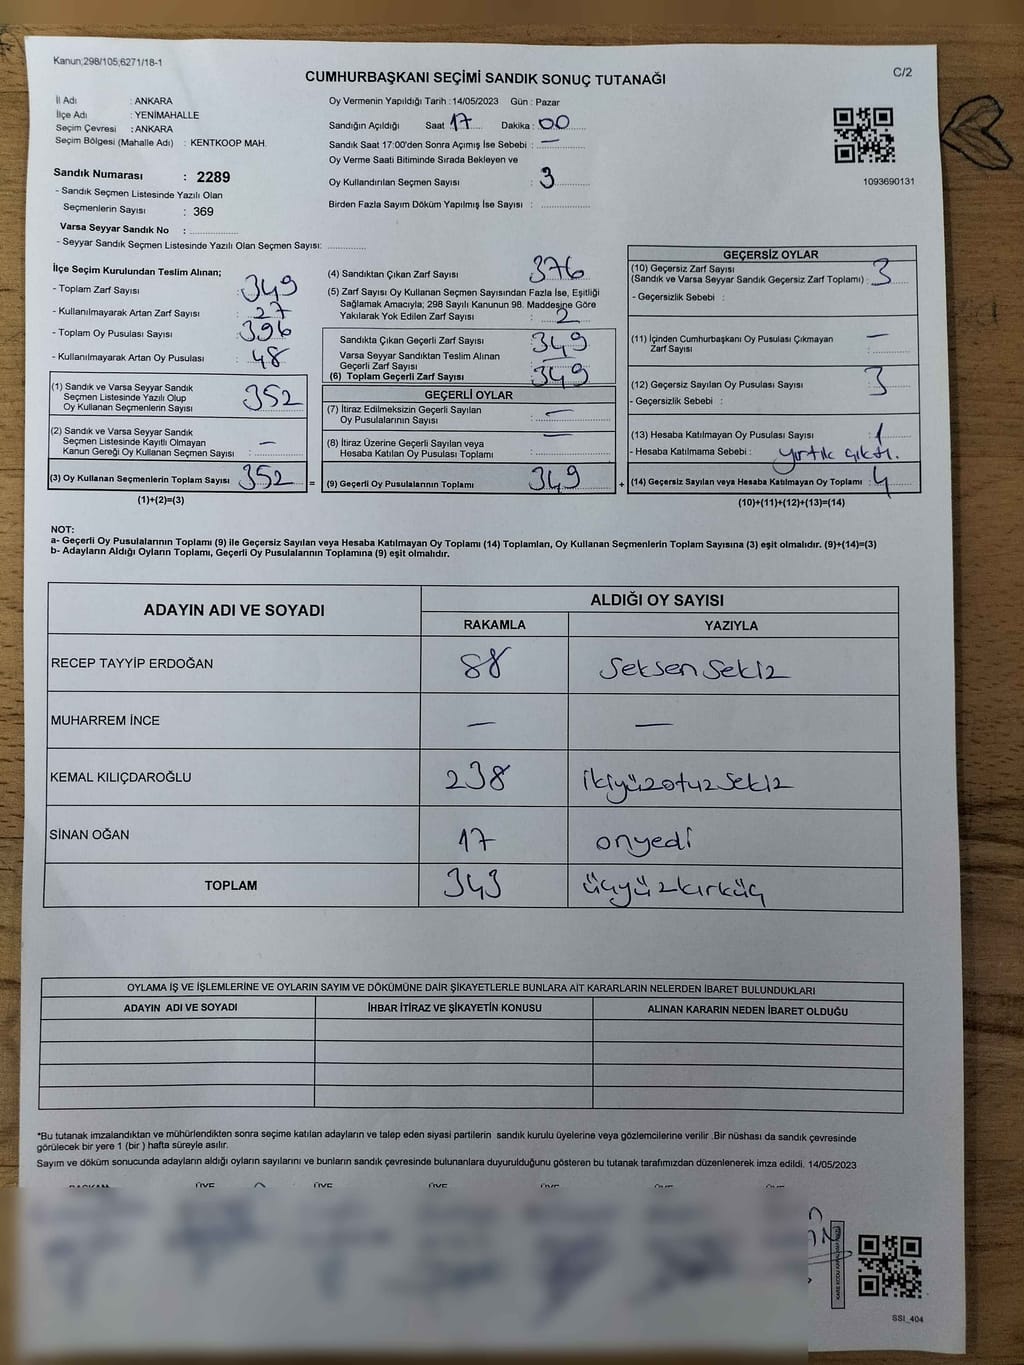 Kanun;298/105,6271/18-1
C/2
CUMHURBAŞKANI SEÇİMİ SANDIK SONUÇ TUTANAĞI
İl Adı : ANKARA
İlçe Adı : YENİMAHALLE
Seçim Çevresi : ANKARA
Seçim Bölgesi (Mahalle Adı) : KENTKOOP MAH.
Sandık Numarası : 2289
- Sandık Seçmen Listesinde Yazılı Olan
Seçmenlerin Sayısı : 369
Varsa Seyyar Sandık No :
- Seyyar Sandık Seçmen Listesinde Yazılı Olan Seçmen Sayısı:
Oy Vermenin Yapıldığı Tarih : 14/05/2023 Gün : Pazar
Sandığın Açıldığı Saat 17 Dakika : 00
Sandık Saat 17:00'den Sonra Açımış İse Sebebi : —
Oy Verme Saati Bitiminde Sırada Bekleyen ve
Oy Kullandırılan Seçmen Sayısı : 3
Birden Fazla Sayım Döküm Yapılmış İse Sayısı :
1093690131
İlçe Seçim Kurulundan Teslim Alınan;
- Toplam Zarf Sayısı : 349
- Kullanılmayarak Artan Zarf Sayısı : 27
- Toplam Oy Pusulası Sayısı : 396
- Kullanılmayarak Artan Oy Pusulası : 48
(1) Sandık ve Varsa Seyyar Sandık
Seçmen Listesinde Yazılı Olup
Oy Kullanan Seçmenlerin Sayısı : 352
(2) Sandık ve Varsa Seyyar Sandık
Seçmen Listesinde Kayıtlı Olmayan
Kanun Gereği Oy Kullanan Seçmen Sayısı : —
(3) Oy Kullanan Seçmenlerin Toplam Sayısı : 352 =
(1)+(2)=(3)
(4) Sandıktan Çıkan Zarf Sayısı : 376
(5) Zarf Sayısı Oy Kullanan Seçmen Sayısından Fazla İse, Eşitliği
Sağlamak Amacıyla; 298 Sayılı Kanunun 98. Maddesine Göre
Yakılarak Yok Edilen Zarf Sayısı : 2
Sandıkta Çıkan Geçerli Zarf Sayısı : 349
Varsa Seyyar Sandıktan Teslim Alınan
Geçerli Zarf Sayısı : —
(6) Toplam Geçerli Zarf Sayısı : 349
GEÇERLİ OYLAR
(7) İtiraz Edilmeksizin Geçerli Sayılan
Oy Pusulalarının Sayısı : —
(8) İtiraz Üzerine Geçerli Sayılan veya
Hesaba Katılan Oy Pusulası Toplamı : —
(9) Geçerli Oy Pusulalarının Toplamı : 349 +
GEÇERSİZ OYLAR
(10) Geçersiz Zarf Sayısı
(Sandık ve Varsa Seyyar Sandık Geçersiz Zarf Toplamı) : 3
- Geçersizlik Sebebi :
(11) İçinden Cumhurbaşkanı Oy Pusulası Çıkmayan
Zarf Sayısı : —
(12) Geçersiz Sayılan Oy Pusulası Sayısı : 3
- Geçersizlik Sebebi :
(13) Hesaba Katılmayan Oy Pusulası Sayısı : 1
- Hesaba Katılmama Sebebi : yırtık çıktı.
(14) Geçersiz Sayılan veya Hesaba Katılmayan Oy Toplamı : 4
(10)+(11)+(12)+(13)=(14)
NOT:
a- Geçerli Oy Pusulalarının Toplamı (9) ile Geçersiz Sayılan veya Hesaba Katılmayan Oy Toplamı (14) Toplamları, Oy Kullanan Seçmenlerin Toplam Sayısına (3) eşit olmalıdır. (9)+(14)=(3)
b- Adayların Aldığı Oyların Toplamı, Geçerli Oy Pusulalarının Toplamına (9) eşit olmalıdır.
ADAYIN ADI VE SOYADI ALDIĞI OY SAYISI
RAKAMLA YAZIYLA
RECEP TAYYİP ERDOĞAN 88 Seksen Sekiz
MUHARREM İNCE — —
KEMAL KILIÇDAROĞLU 238 ikiyüzotuzsekiz
SİNAN OĞAN 17 onyedi
TOPLAM 343 üçyüzkırküç
OYLAMA İŞ VE İŞLEMLERİNE VE OYLARIN SAYIM VE DÖKÜMÜNE DAİR ŞİKAYETLERLE BUNLARA AİT KARARLARIN NELERDEN İBARET BULUNDUKLARI
ADAYIN ADI VE SOYADI İHBAR İTİRAZ VE ŞİKAYETİN KONUSU ALINAN KARARIN NEDEN İBARET OLDUĞU
*Bu tutanak imzalandıktan ve mühürlendikten sonra seçime katılan adayların ve talep eden siyasi partilerin sandık kurulu üyelerine veya gözlemcilerine verilir .Bir nüshası da sandık çevresinde
görülecek bir yere 1 (bir ) hafta süreyle asılır.
Sayım ve döküm sonucunda adayların aldığı oyların sayılarını ve bunların sandık çevresinde bulunanlara duyurulduğunu gösteren bu tutanak tarafımızdan düzenlenerek imza edildi. 14/05/2023
BAŞKAN ÜYE ÜYE ÜYE ÜYE ÜYE ÜYE
SSI_404